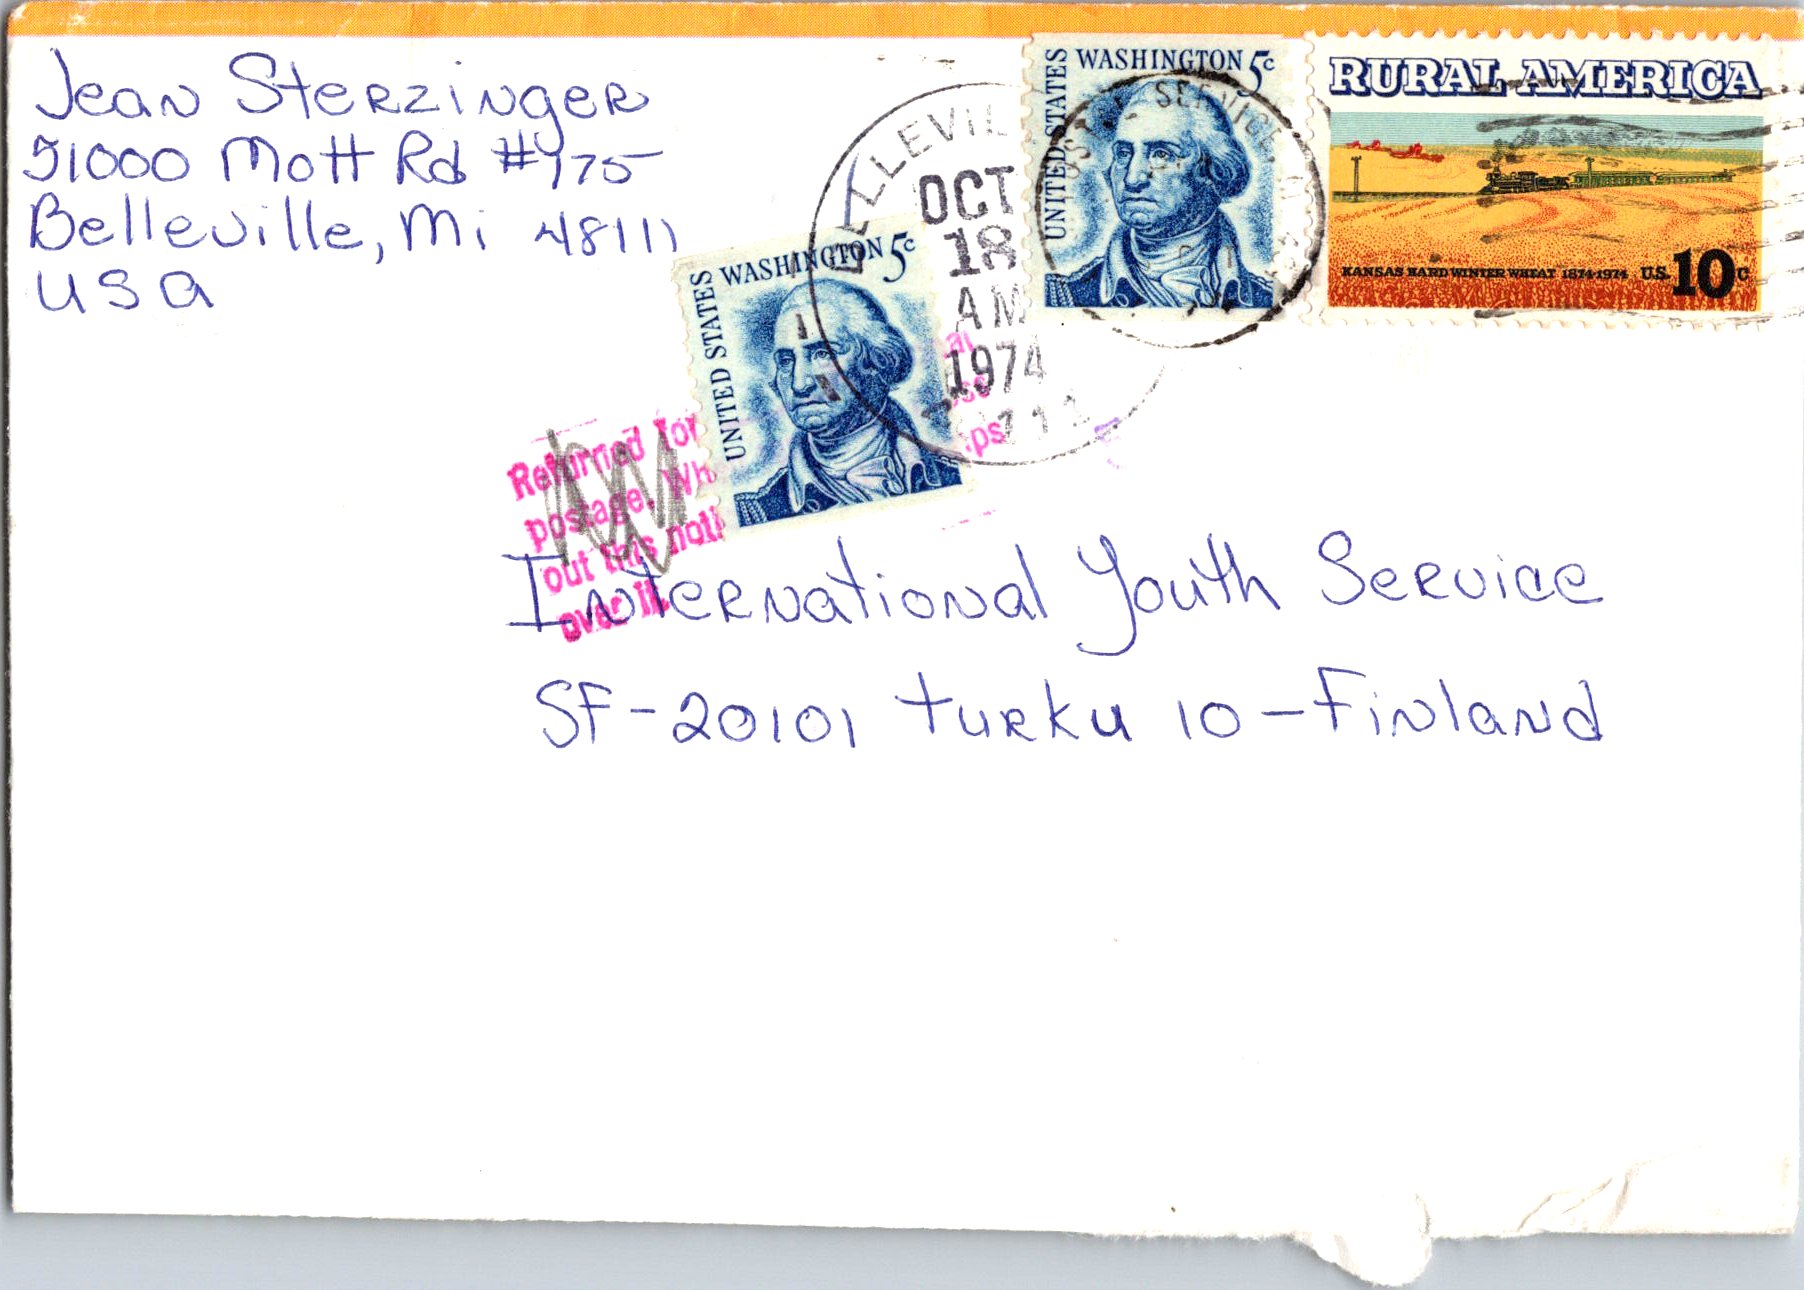 Jean Sterzinger
51000 Mott Rd #175
Belleville, Mi 48111
USA
UNITED STATES
WASHINGTON 5c
UNITED STATES
WASHINGTON 5c
RURAL AMERICA
KANSAS HARD WINTER WHEAT 1874-1974 U.S. 10c
OCT
18
AM
1974
SERVICE,
Returned for
postage. Wh
out this noti
over it.
International Youth Service
SF-20101 Turku 10-Finland